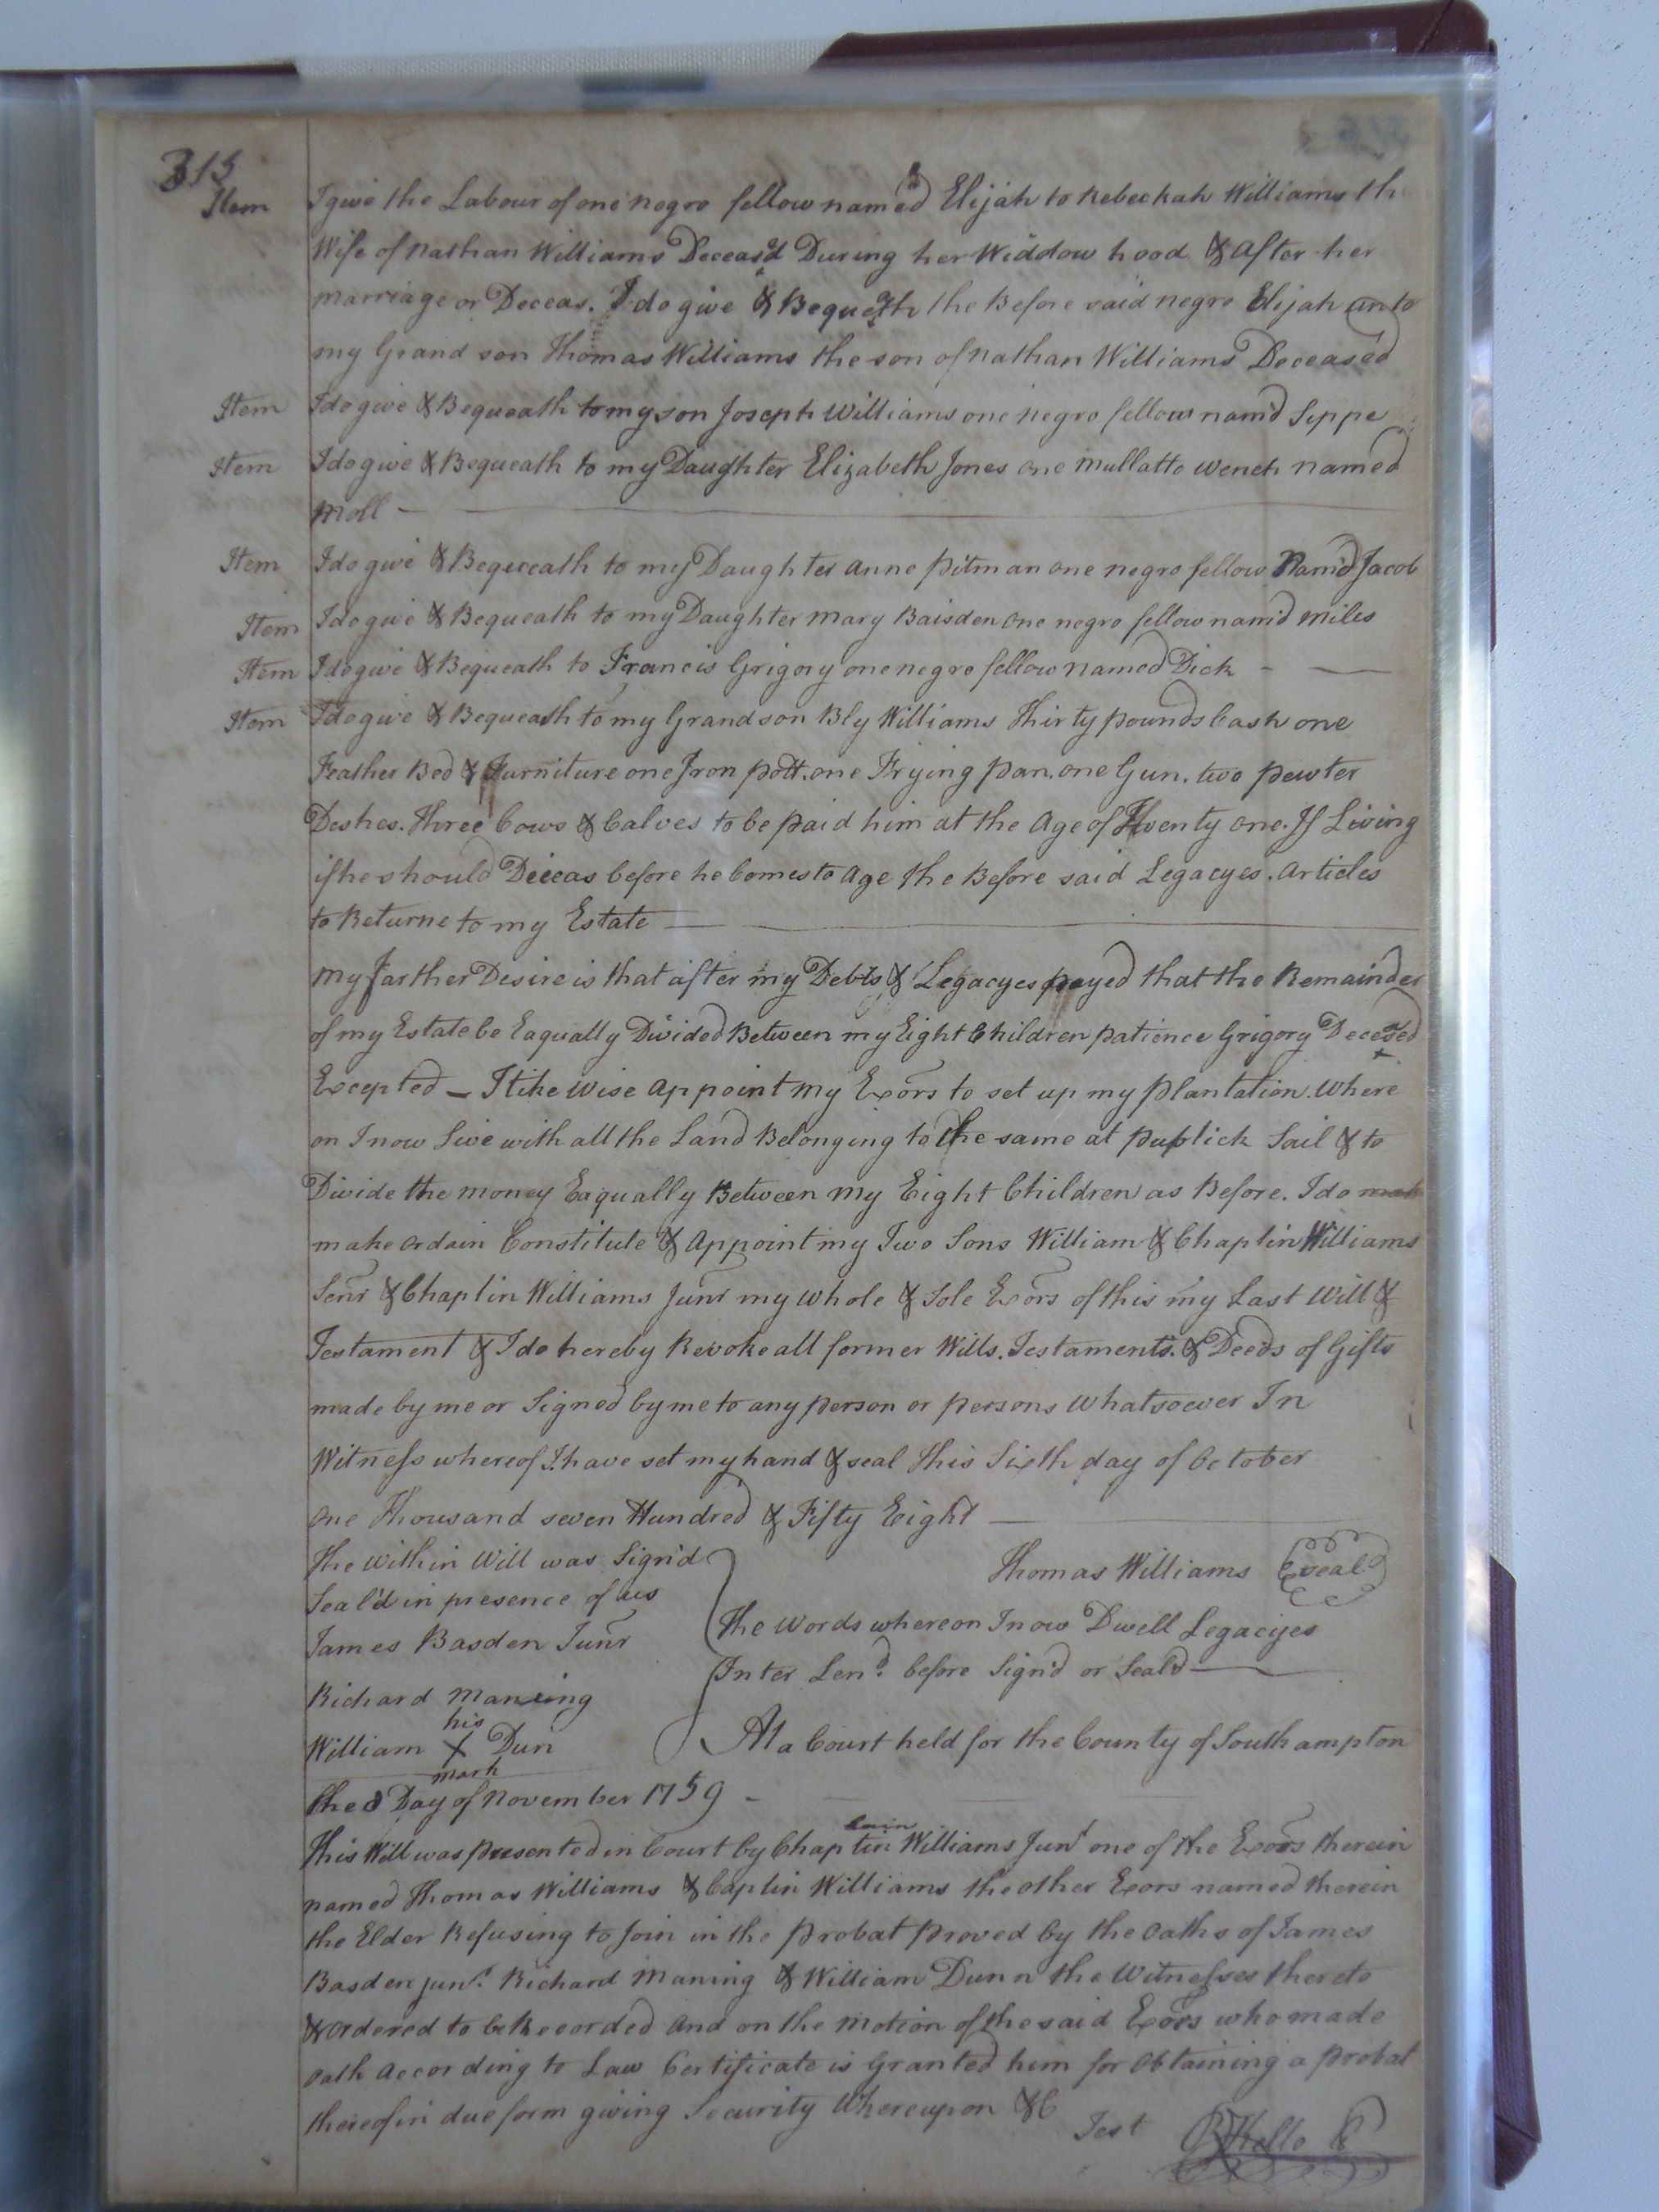 315
Item I give the Labour of one negro fellow named Elijah to Rebeckah Williams th
Wife of Nathan Williams Deceasd During her Widdow hood & After her
marriage or Deceas. I do give & Bequeath the Before said negro Elijah unto
my Grand son Thomas Williams the son of Nathan Williams Deceased
Item I do give & Bequeath to my son Joseph Williams one negro fellow nam'd Seppe
Item I do give & Bequeath to my Daughter Elizabeth Jones one mullatto wench named
Moll
Item I do give & Bequeath to my Daughter Anne Pitman one negro fellow Nam'd Jacob
Item I do give & Bequeath to my Daughter Mary Baisden one negro fellow nam'd Miles
Item I do give & Bequeath to Francis Grigory one negro fellow named Dick
Item I do give & Bequeath to my Grandson Bly Williams Thirty pounds Cash one
Feather Bed & Furniture one Iron pott. one Frying pan. one Gun. two pewter
Deshes. Three Cows & Calves to be paid him at the Age of Twenty one. If Living
if he should Deceas before he Comes to Age the Before said Legacyes. Articles
to Returne to my Estate
My farther Desire is that after my Debts & Legacyes payed that the Remainder
of my Estate be Eaqually Divided Between my Eight Children patience Grigory Decesed
Excepted – I like wise Appoint my Exors to set up my plantation Where
on I now Live with all the Land Belonging to the same at publick Sail & to
Divide the money Eaqually Between my Eight Children as Before. I do mak
make ordain Constitute & Appoint my Two Sons William & Chaplin Williams
Senr & Chaplin Williams Junr my whole & Sole Exors of this my Last Will &
Testament & I do hereby Revoke all former Wills. Testaments. & Deeds of Gifts
made by me or Signed by me to any person or persons Whatsoever In
Witness whereof I have set my hand & seal This Sixth day of October
One Thousand seven Hundred & Fifty Eight
The Within Will was Sign'd
Seal'd in presence of us
James Basden Junr
Richard Maning
his
William X Dun
mark
Thomas Williams Seal
The Words whereon I now Dwell Legacyes
Inter Lend. before Sign'd or Seal'd
At a Court held for the County of Southampton
the 8 Day of November 1759
lain
This Will was presented in Court by Chaplin Williams Junr one of the Exors therein
named Thomas Williams & Caplin Williams the other Exors named therein
the Elder Refusing to Join in the probat proved by the Oaths of James
Basden junr. Richard Maning & William Dunn the Witnesses thereto
& ordered to be Recorded And on the Motion of the said Exors who made
Oath According to Law Certificate is Granted him for Obtaining a probat
thereof in due form giving Security Whereupon &C
Test R Kello C